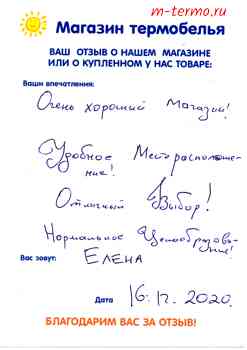 m-termo.ru
Магазин термобелья
ВАШ ОТЗЫВ О НАШЕМ МАГАЗИНЕ
ИЛИ О КУПЛЕННОМ У НАС ТОВАРЕ:
Ваши впечатления:
Очень хороший Магазин!
Удобное Месторасположе-
ние!
Отличный Выбор!
Нормальное Ценообразова-
ние!
Вас зовут: ЕЛЕНА
Дата 16.12.2020.
БЛАГОДАРИМ ВАС ЗА ОТЗЫВ!